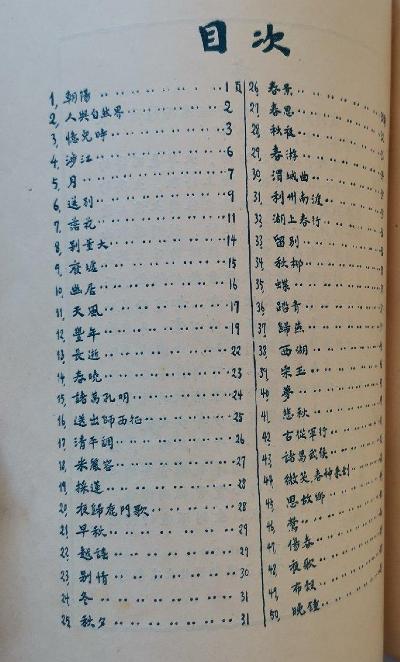 目次
1. 朝陽 1頁
2. 人與自然界 2
3. 憶兒時 3
4. 涉江 6
5. 月 7
6. 送別 9
7. 落花 11
8. 別董大 14
9. 廢墟 15
10. 幽居 16
11. 天風 17
12. 豐年 19
13. 長逝 22
14. 春晚 23
15. 諸葛孔明 24
16. 送出師西征 25
17. 清平調 26
18. 采蓮容 27
19. 採蓮 28
20. 夜歸鹿門歌 28
21. 早秋 29
22. 越謠 29
23. 別情 30
24. 冬 31
25. 秋夕 31
26. 春景
27. 春思
28. 秋夜
29. 春游
30. 渭城曲
31. 利州南渡
32. 湖上春行
33. 留別
34. 秋柳
35. 蝶
36. 踏青
37. 歸燕
38. 西湖
39. 宋玉
40. 夢
41. 悲秋
42. 古從軍行
43. 諸葛武侯
44. 微笑春神來到
45. 思故鄉
46. 鶯
47. 傷春
48. 夜歌
49. 布穀
50. 晚鐘